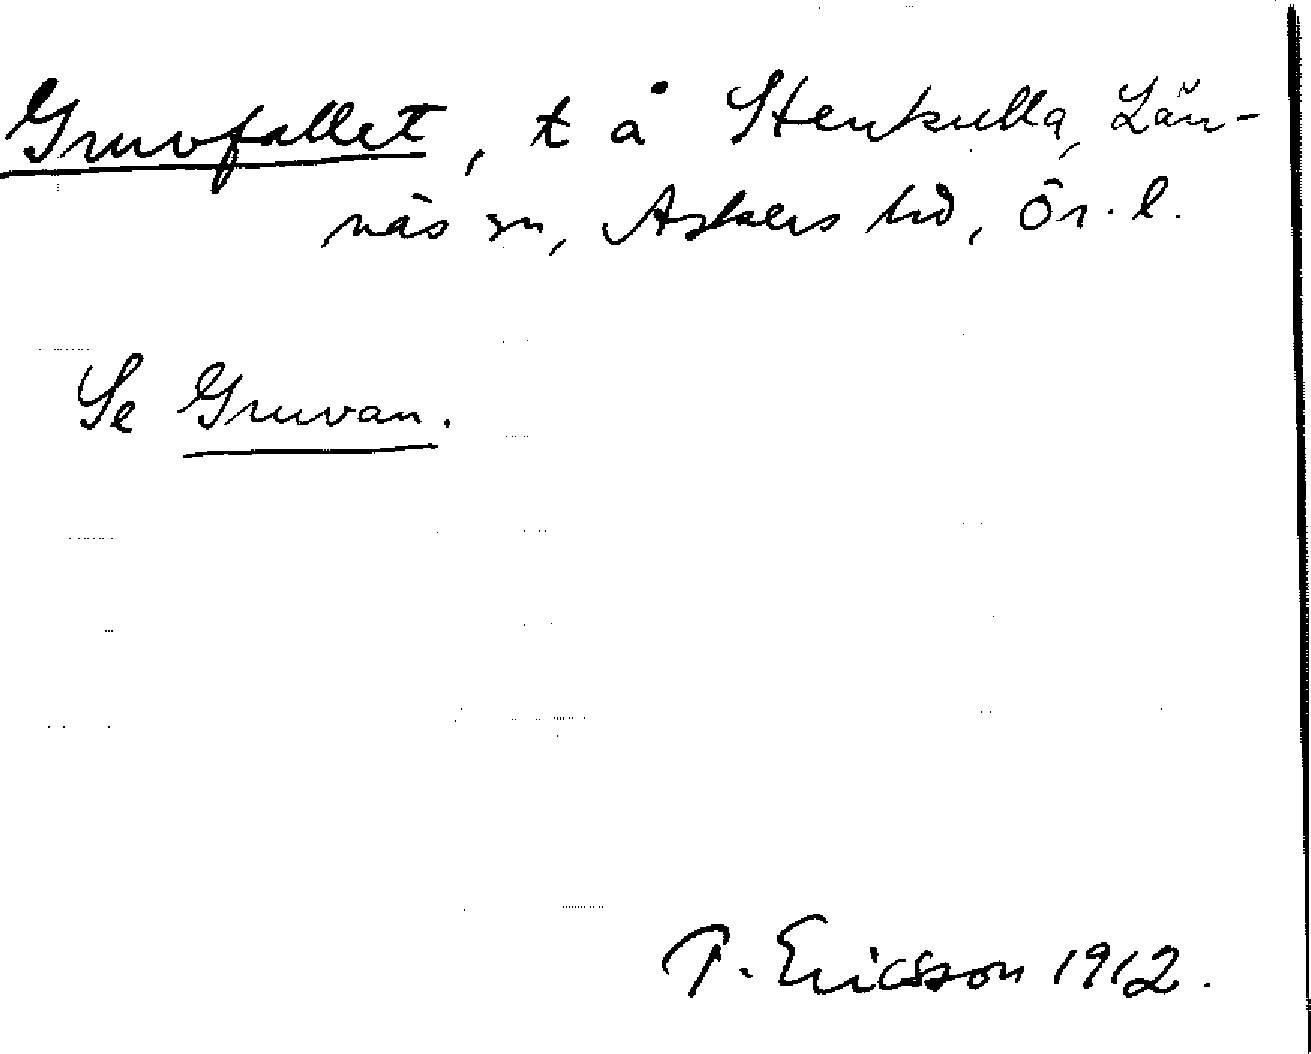 Gruvfallet, t å Stenkulla, Län-
näs sn, Askers hd, Ör. l.
Se Gruvan.
P. Ericsson 1912.